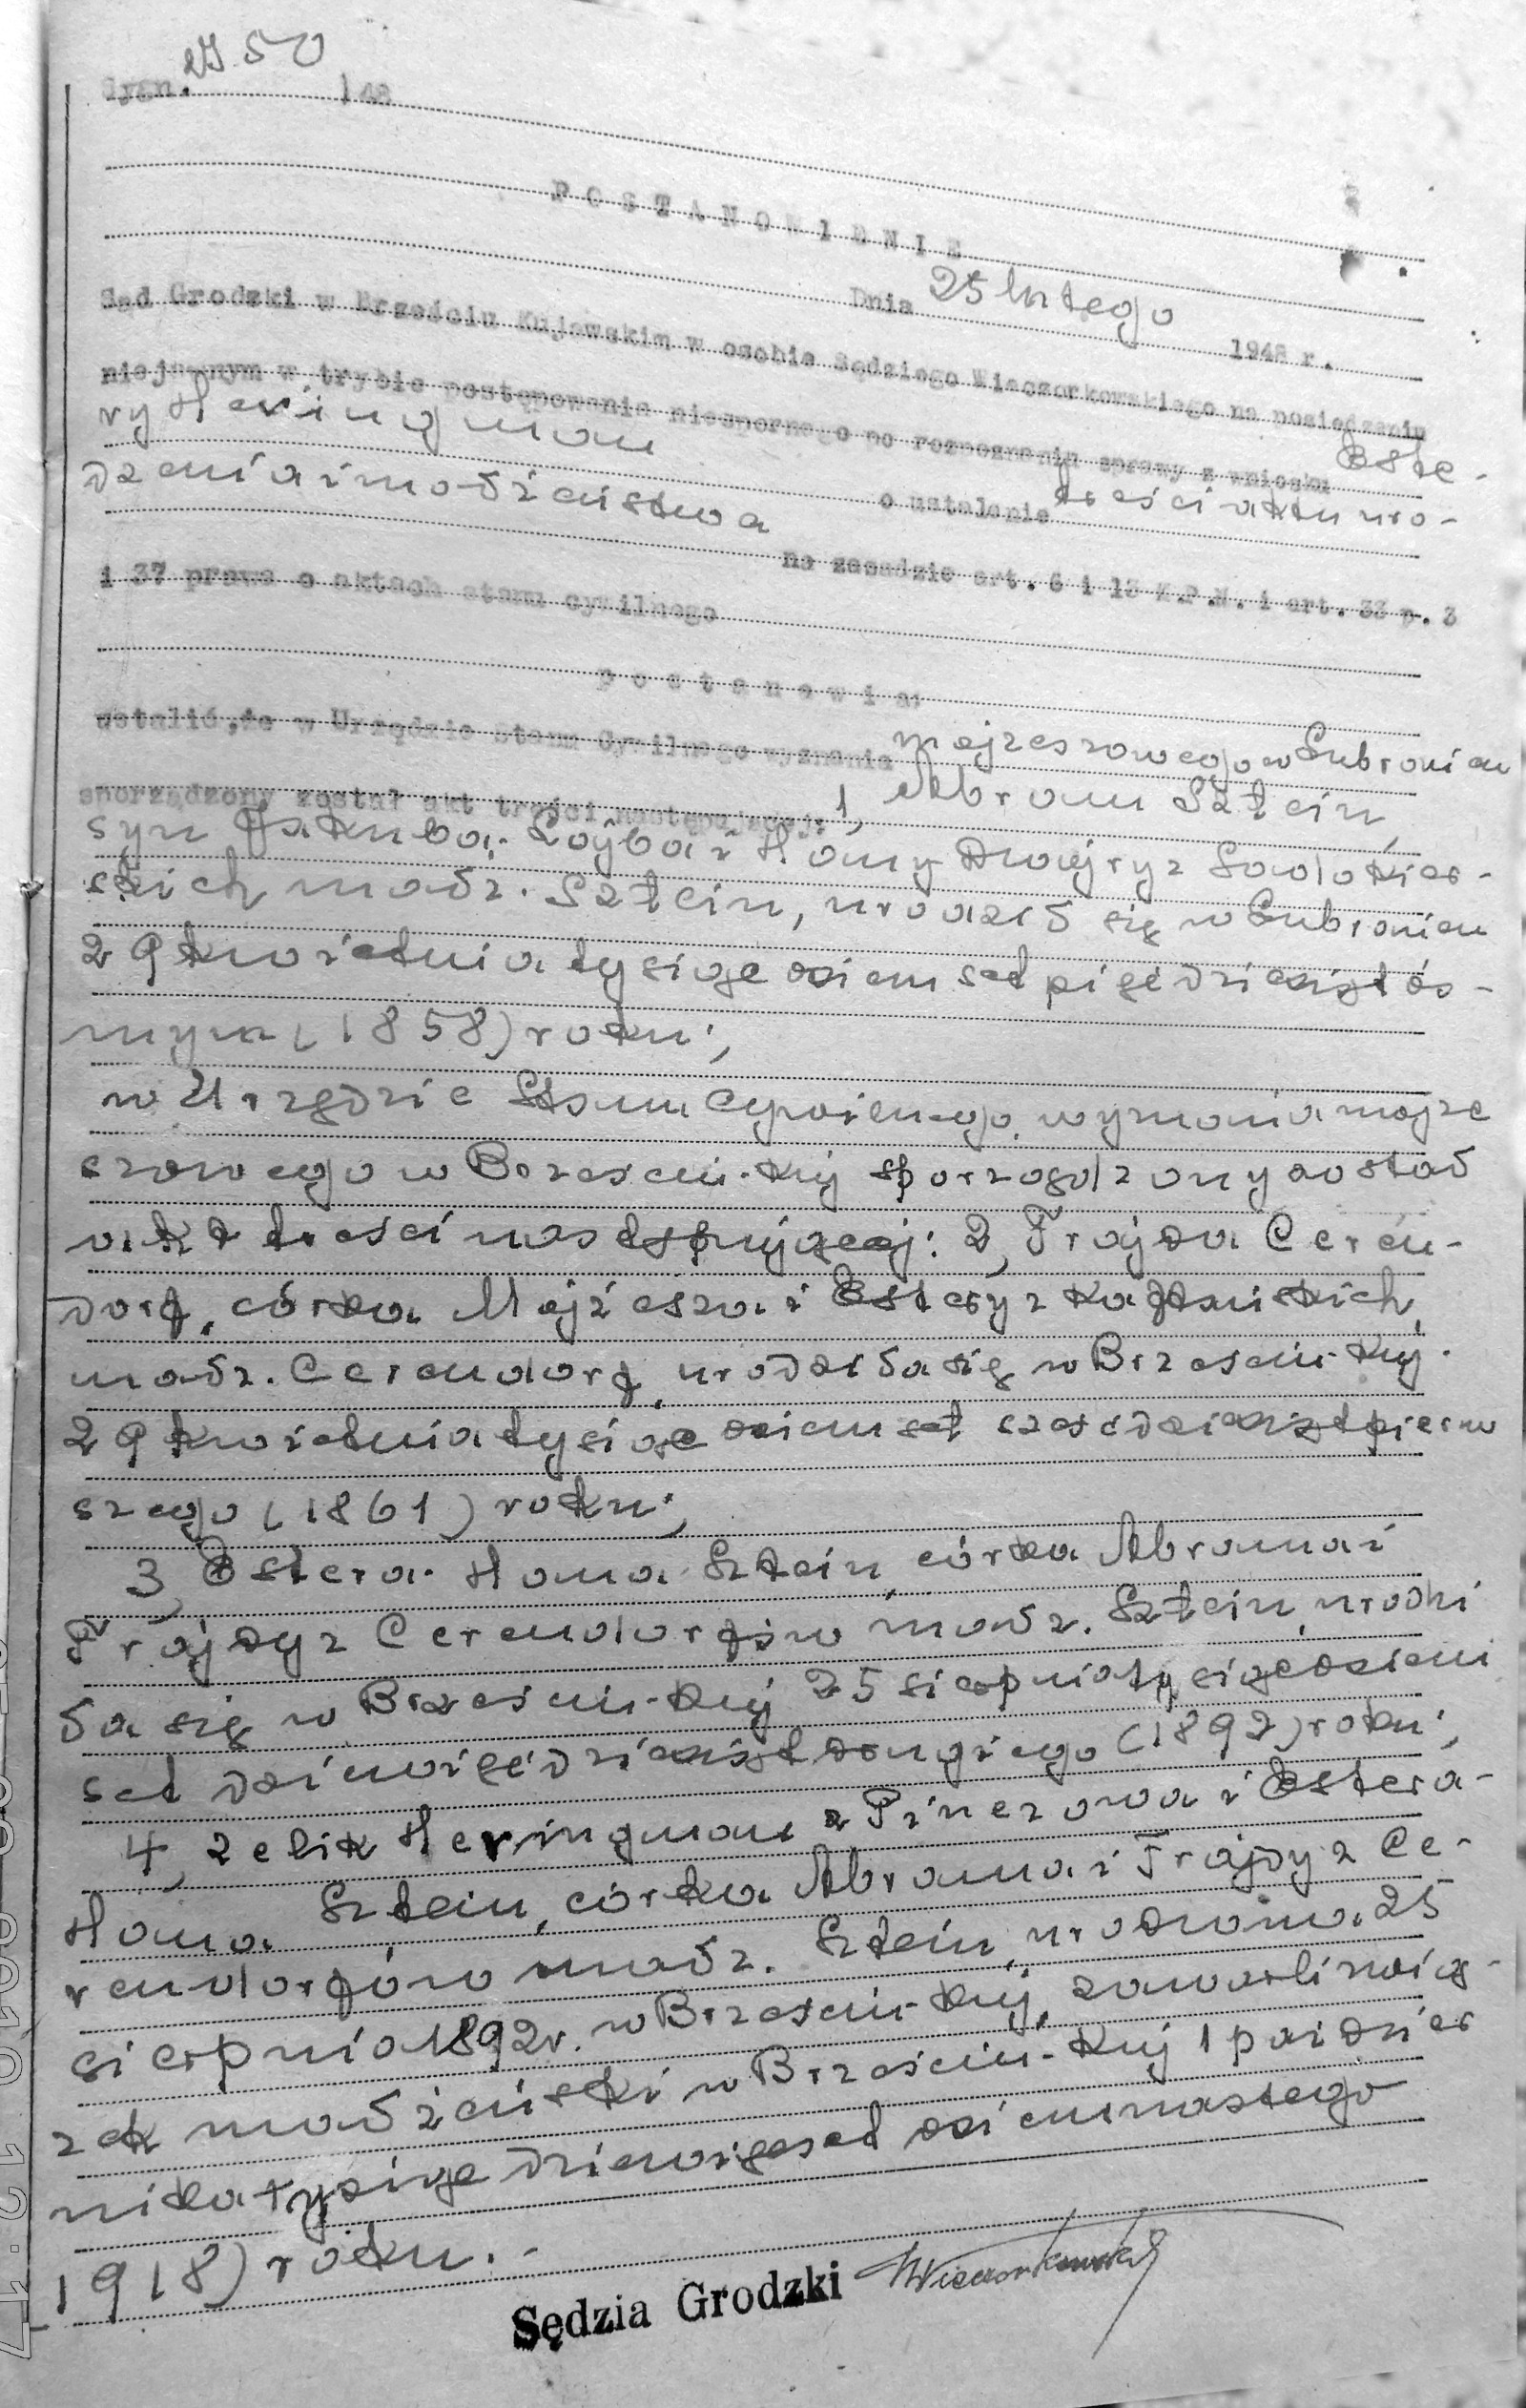 Sygn. 50 /48
POSTANOWIENIE
Dnia 25 lutego 1948 r.
Sąd Grodzki w Brześciu Kujawskim w osobie Sędziego Wieczorkowskiego na posiedzeniu
niejawnym w trybie postępowania niespornego po rozpoznaniu sprawy z wniosku Este-
ry Heringman o ustalenie treści aktu uro-
dzenia i małżeństwa na zasadzie art. 6 i 13 K.P.N. i art. 33 p. 3
i 37 prawa o aktach stanu cywilnego
postanowia:
ustalić, że w Urzędzie Stanu Cywilnego wyznania mojżeszowego w Lubrańcu
sporządzony został akt treści następującej: 1, Abram Sztein,
syn Jakuba-Lojba i Hany Dwojry z
skich małż. Sztein, urodził się w Lubrańcu
29 kwietnia tysiąc osiemset pięćdziesiąt ós-
mym (1858) roku;
w Urzędzie Stanu Cywilnego wyznania mojże
szowego w Brześciu-Kuj sporządzony został
akt treści następującej: 2, Frajda Ceren-
dorf, córka Mojżesza i Estery z
małż. Cerendorf, urodziła się w Brześciu-Kuj.
29 kwietnia tysiąc osiemset sześćdziesiąt pierw
szego (1861) roku;
3, Estera-Hana Sztein, córka Abrama i
Frajdy z Cerendorfów małż. Sztein, urodzi
ła się w Brześciu-Kuj 25 sierpnia tysiąc osiem
set dziewięćdziesiąt drugiego (1892) roku;
4, Zelik Heringman z Pinczowa i Estera-
Hana Sztein, córka Abrama i Frajdy z Ce-
rendorfów małż. Sztein, urodzona 25
sierpnia 1892 r. w Brześciu-Kuj, zawarli zwią-
zek małżeński w Brześciu-Kuj 1 paździer
nika tysiąc dziewięćset osiemnastego
1918) roku.-
Sędzia Grodzki Wieczorkowski